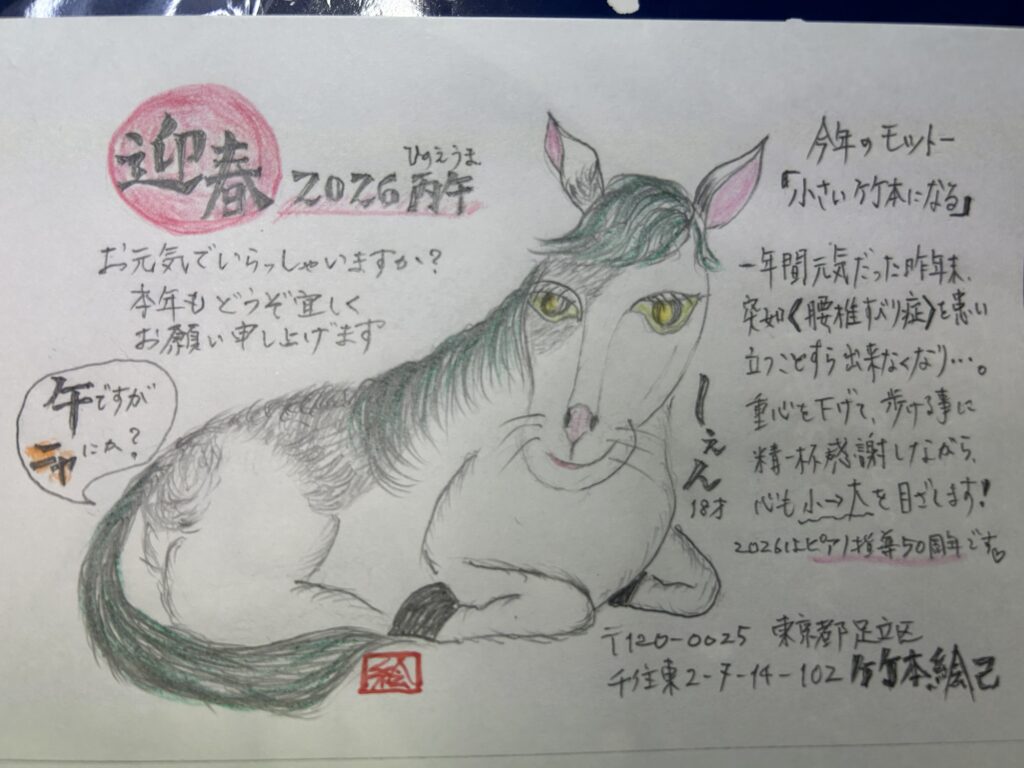 迎春
2026 丙午
ひのえうま
お元気でいらっしゃいますか?
本年もどうぞ宜しく
お願い申し上げます
午ですが
ニャにか?
しぇん
18才
今年のモットー
「小さい竹本になる」
一年間元気だった昨年末、
突如《腰椎すべり症》を患い
立つことすら出来なくなり…。
重心を下げて、歩ける事に
精一杯感謝しながら、
心も小→大を目ざします!
2026はピアノ指導50周年です♡
〒120-0025 東京都足立区
千住東2-7-14-102 竹本絵己
絵